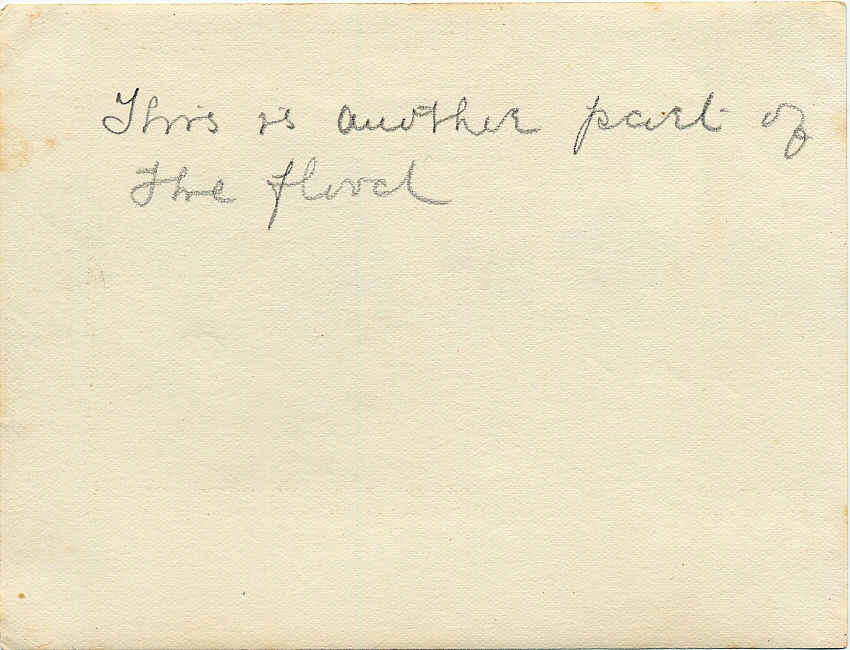 This is another part of
the flood